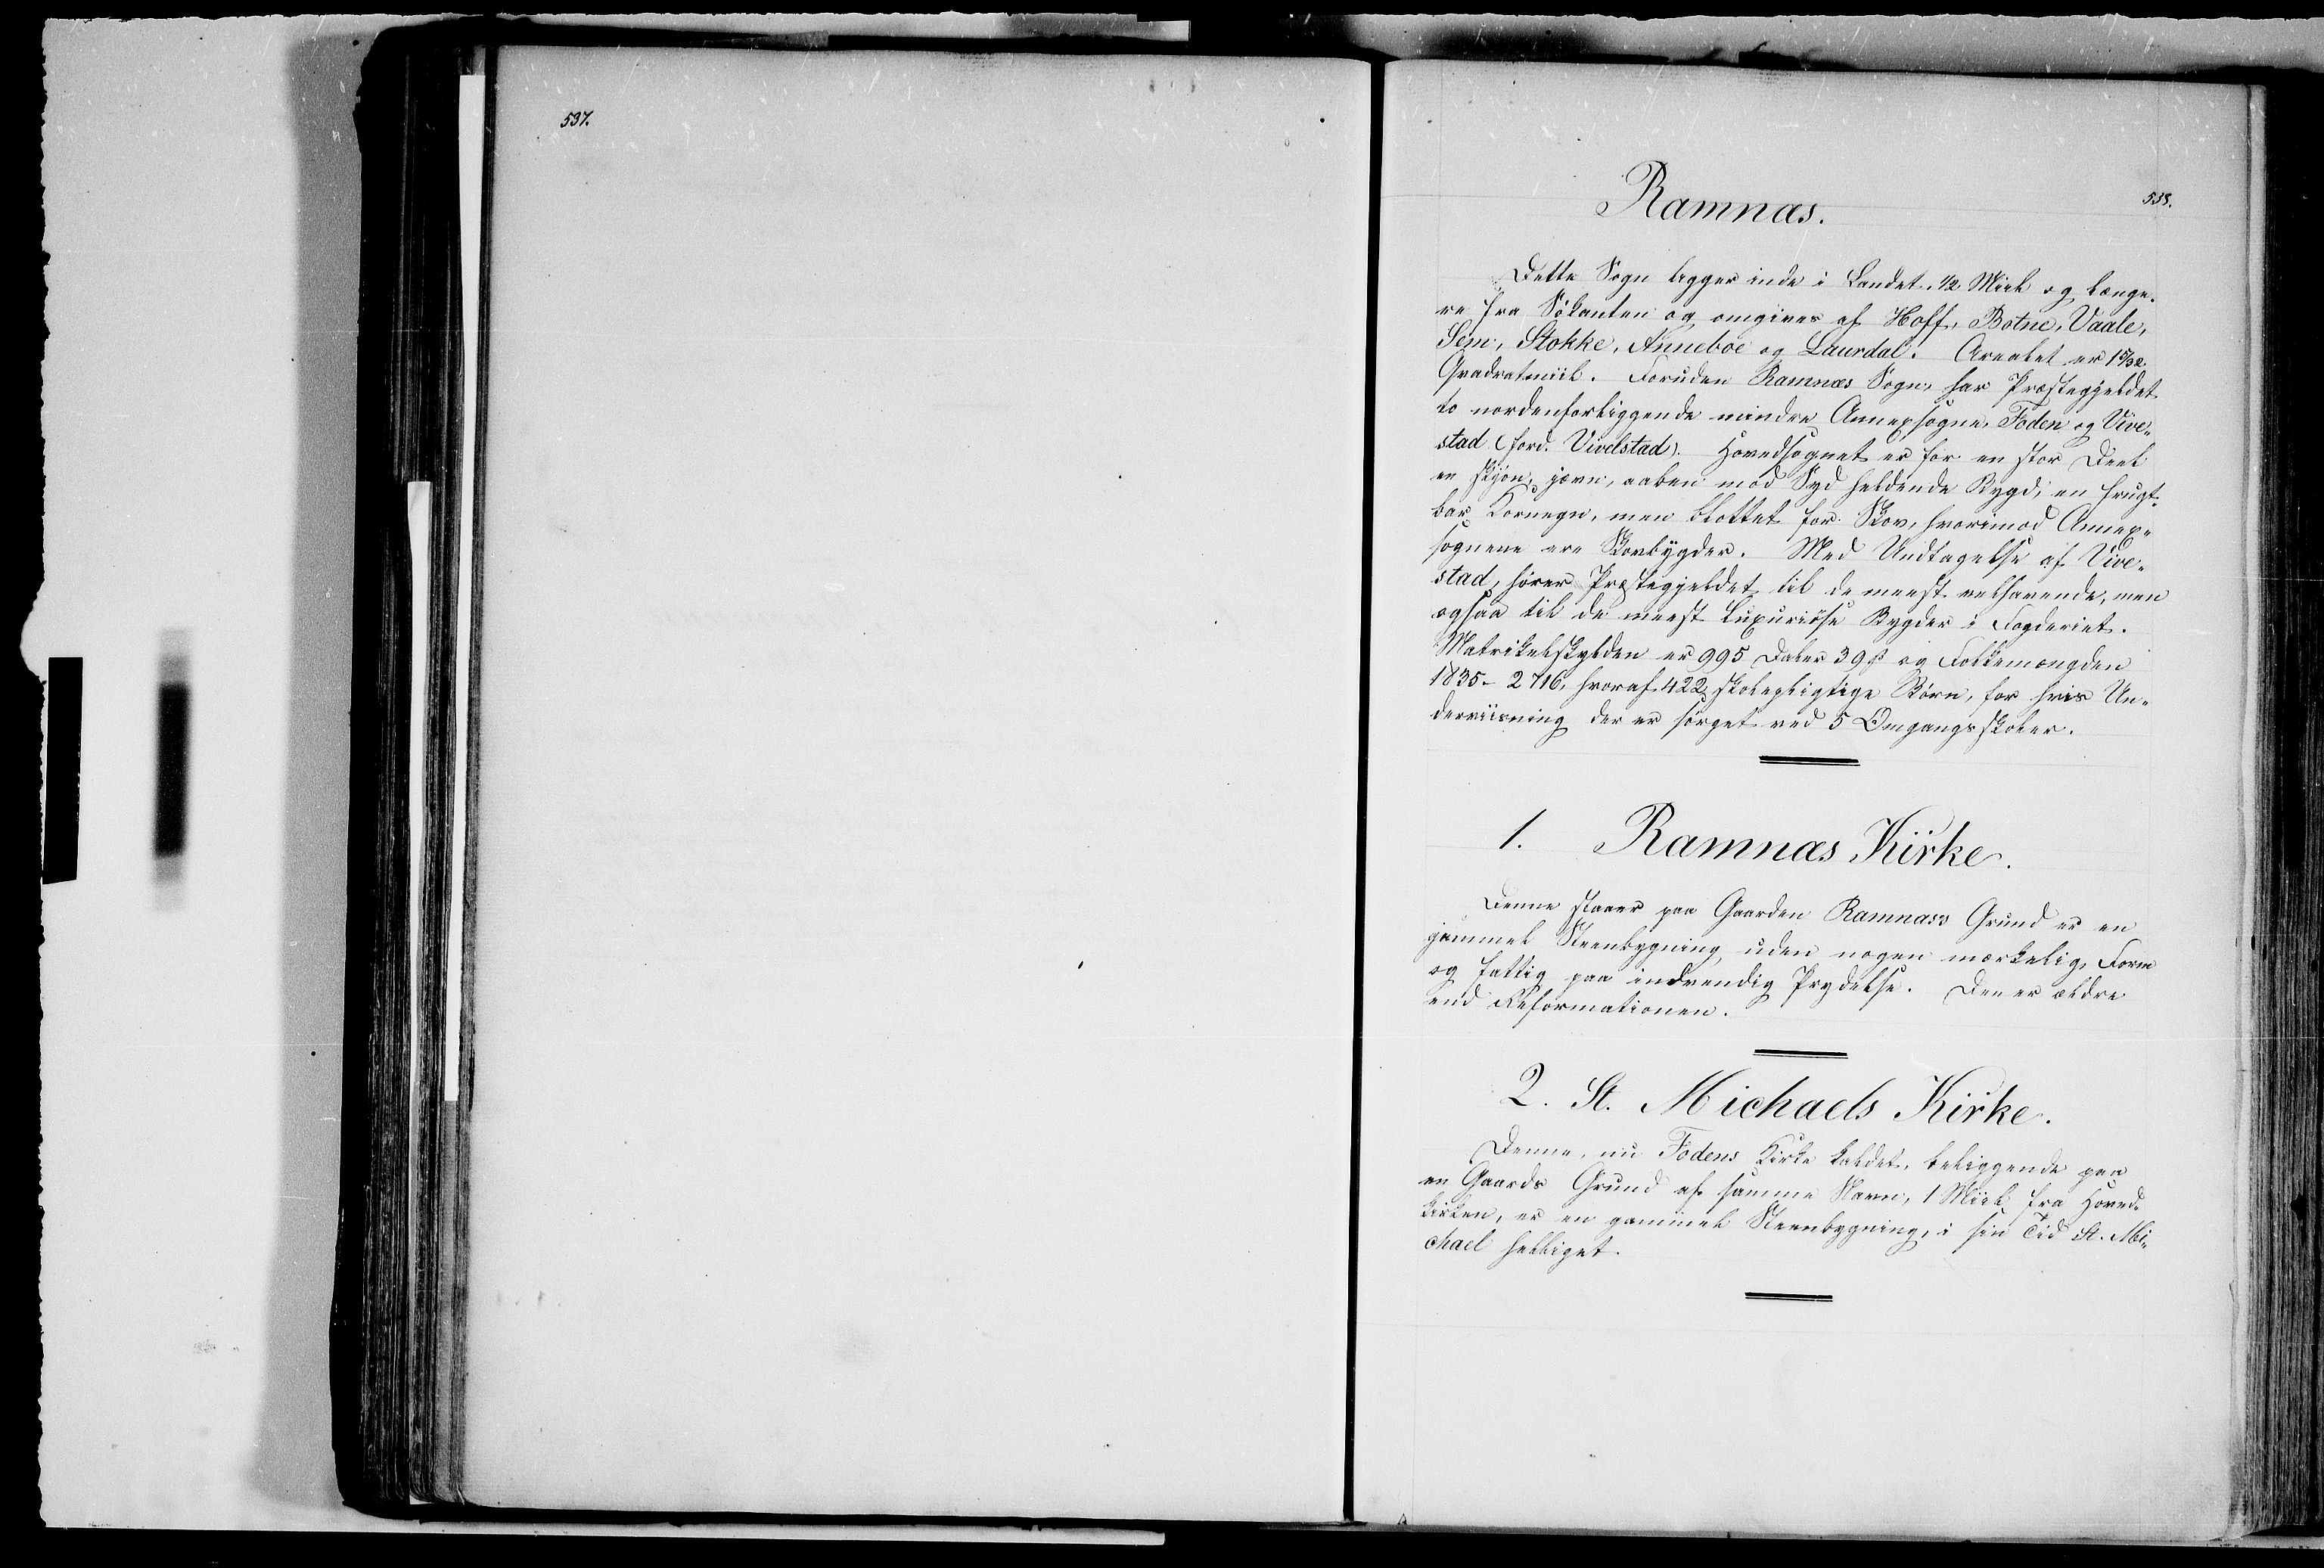 537.
538.
Ramnæs.
Dette Sogn ligger inde i Landet, 1/2 Miil og længe-
re fra Søkanten og omgives af Hoff, Botne, Vaale,
Sem, Stokke, Anneboe og Laurdal. Arealet er
Qvadratmiil. Foruden Ramnæs Sogn, har Præstegjeldet
to nordenforliggende mindre Annexsogne, Foden og Vive-
stad (ford. Vivelstad). Hovedsognet er for en stor Deel
en skjøn, jævn, aaben mod Syd heldende Bygd, en frugt-
bar Kornegn, men blottet for Skov, hvorimod Annex-
sognene ere Skovbygder. Med Undtagelse af Vive-
stad, hører Præstegjeldet til de meest velhavende, men
ogsaa til de meest luxuriøse Bygder i Fogderiet.
Matrikelskylden er 995 Daler 39 ß og Folkemængden
1835 - 2716, hvoraf 422 skolepligtige Børn, for hvis Un-
derviisning der er sørget ved 5 Omgangsskoler.
1. Ramnæs Kirke.
Denne staaer paa Gaarden Ramnæss Grund er en
gammel Steenbygning uden nogen mærkelig Form
og fattig paa indvendig Prydelse. Den er ældre
end Reformationen.
2. St. Michaels Kirke.
Denne, nu Fodens Kirke kaldet, beliggende paa
en Gaards Grund af samme Navn, 1 Miil fra Hoved-
kirken, er en gammel Steenbygning, i sin Tid St. Mi-
chael helliget.